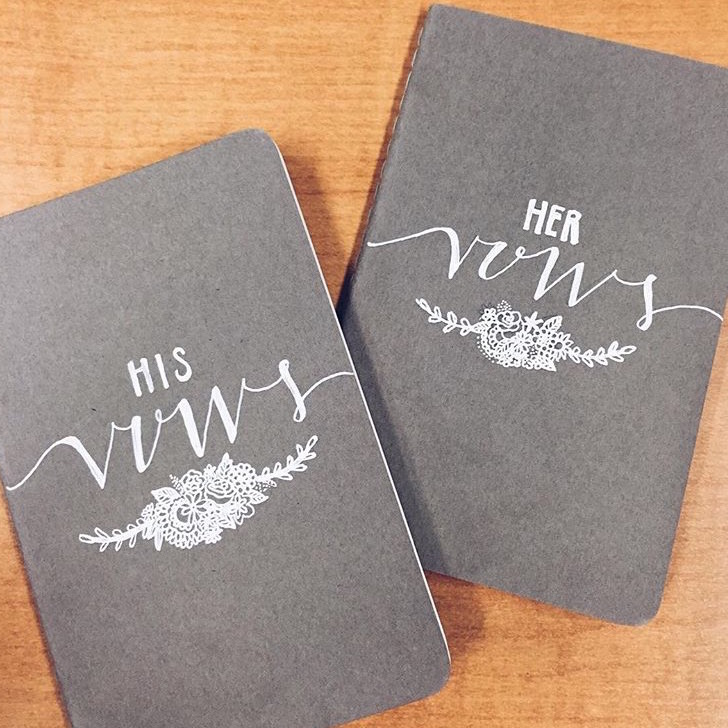 HIS
vows
HER
vows